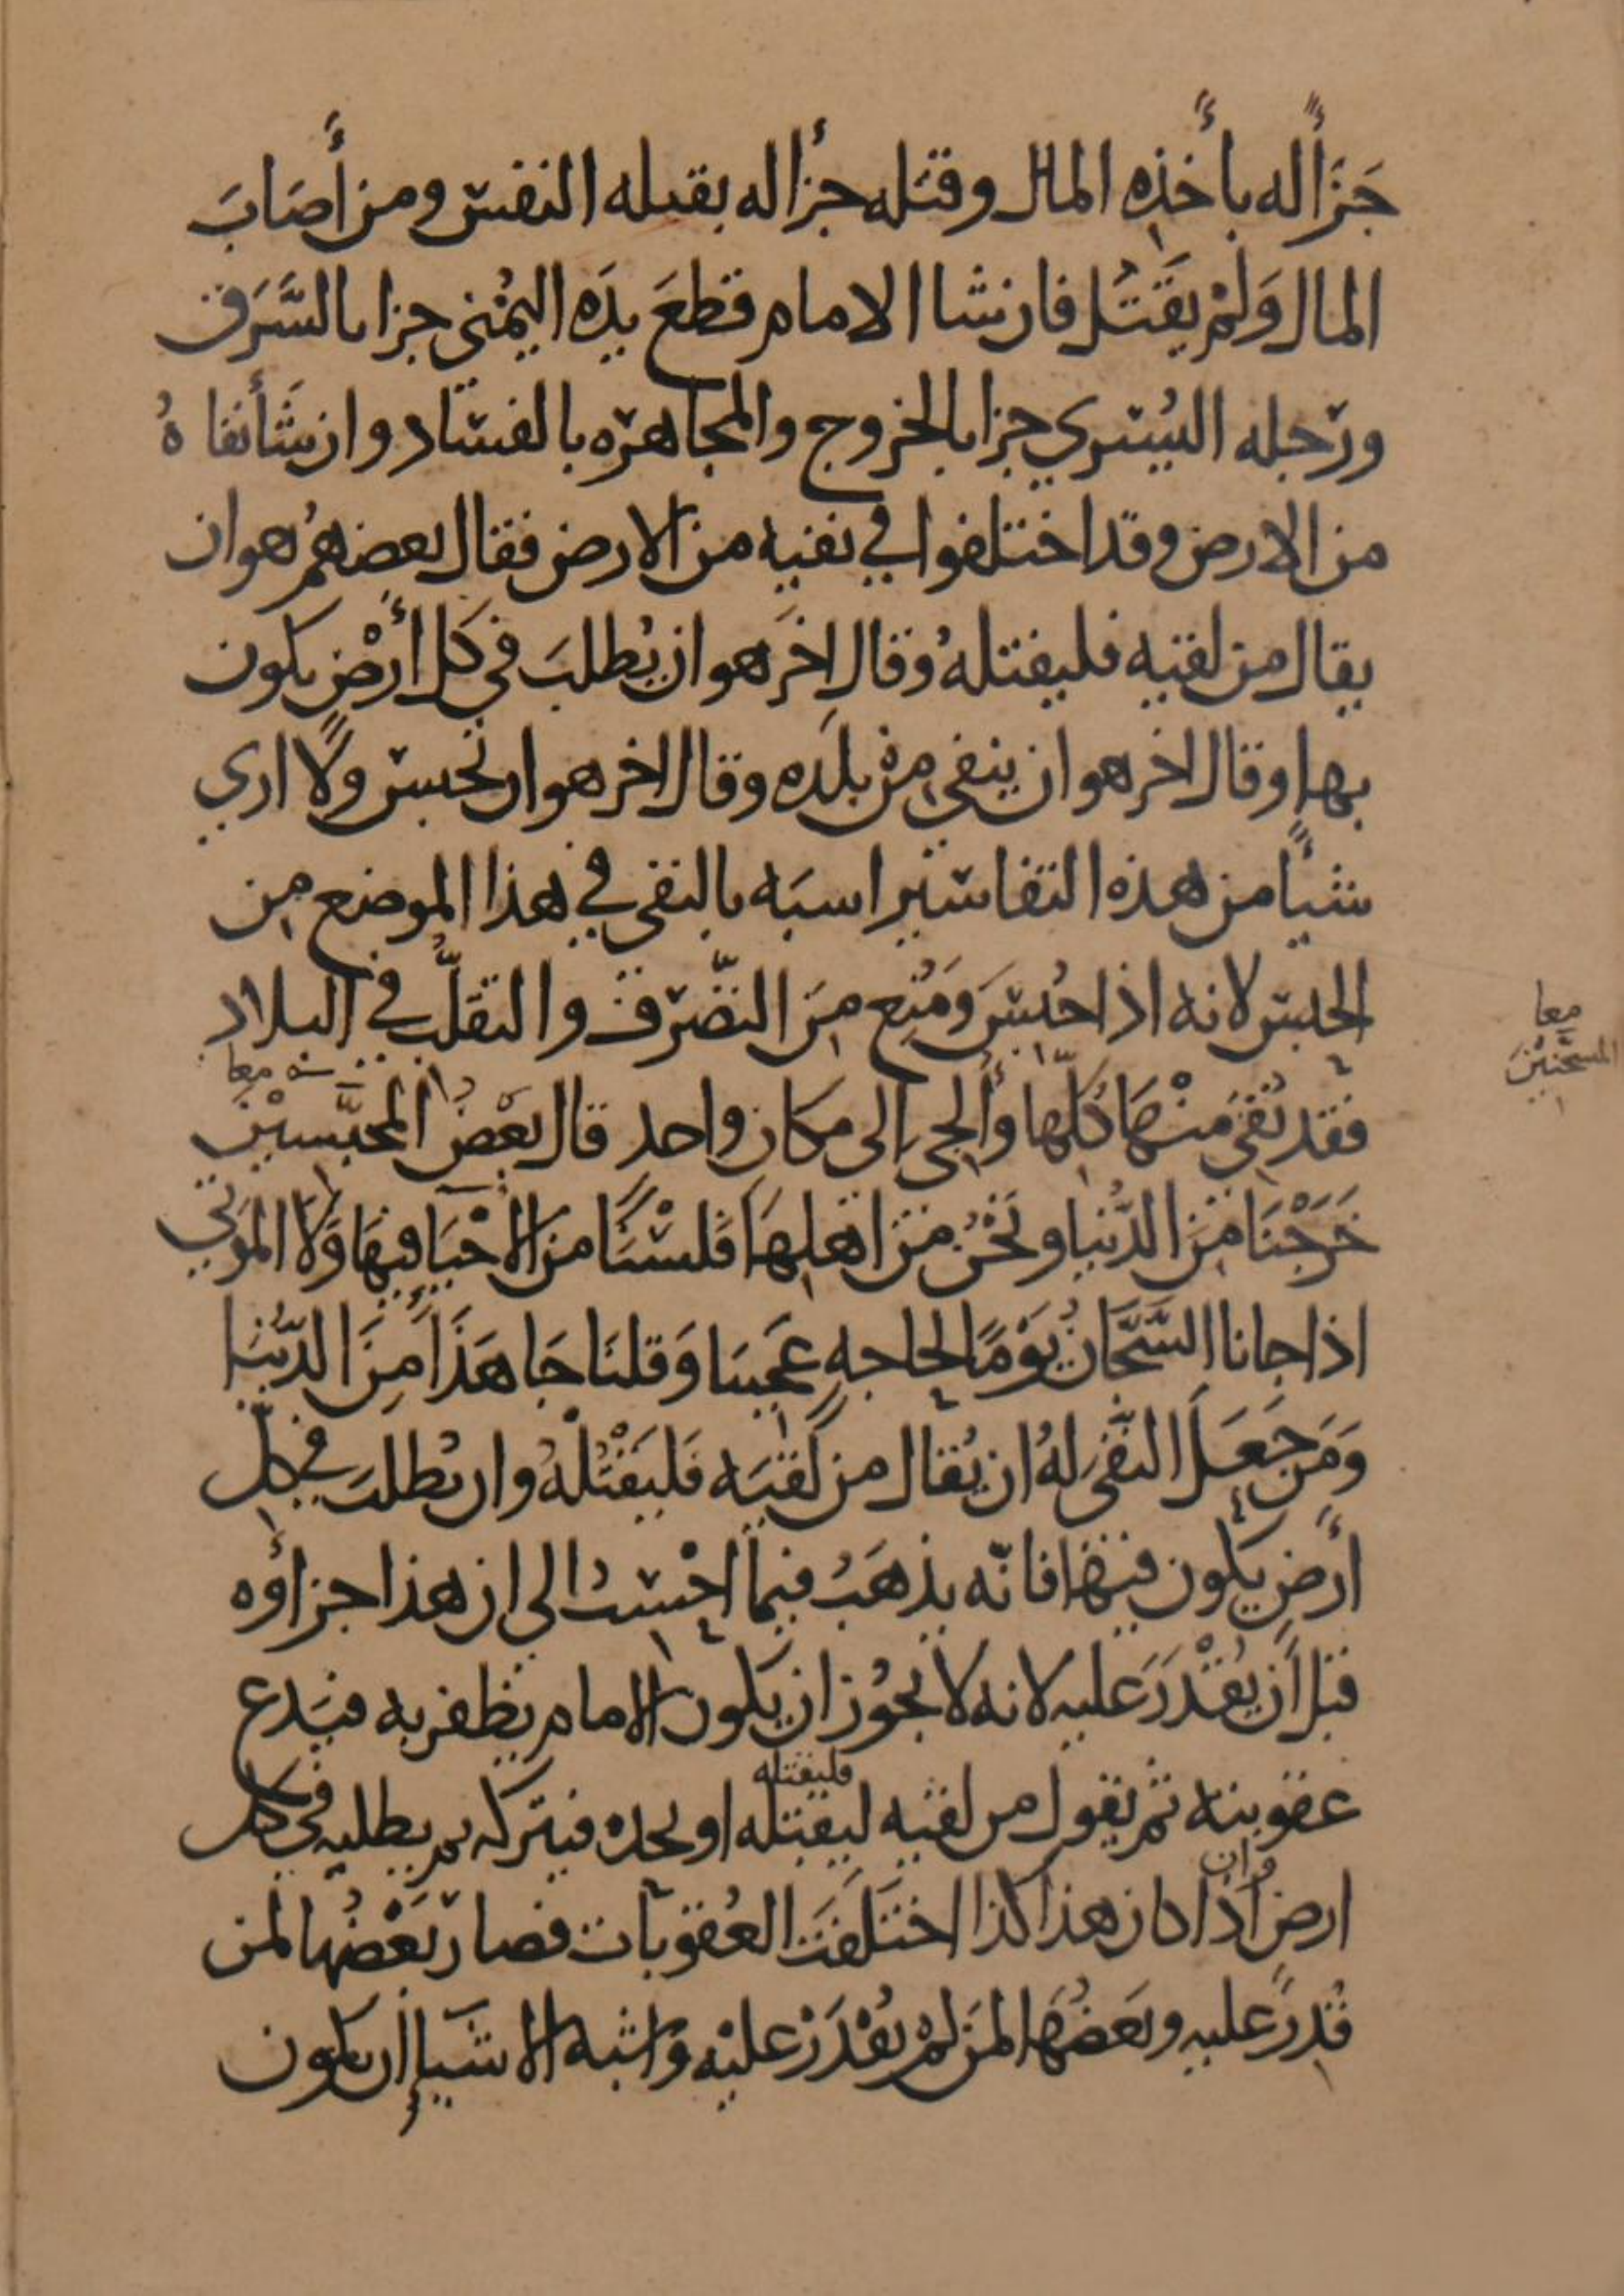 جَزَأً له بأخذِه المال وقتله جزأ له بقتله النفس ومن أَصَابَ
المال وَلمْ يَقتُل فان شا الامام قطعَ يدَه اليمُنى جزا بالسَّرَق
ورجله اليُسرى جزا بالخروج والمجاهره بالفساد وان شَأ نفا هُ
من الارض وقد اختلفوا في نفيه من الارض فقال بعضهمُ هو ان
يقال من لقيه فليقتلهُ وقال اخَر هو ان يُطلبَ في كل أرْضٍ يكون
بها وقال اخر هو ان ينفى مِنْ بلَده وقال اخر هو ان يحبس ولًا ارى
شيًا من هذه التفاسير اسبَه بالنفى في هذا الموضع من
الحبس لانه اذا حُبسَ وَمُنِع مِنَ التصّرف والتقلُّب في البلاد
فقد نُفىَ مِنْهَا كُلّها وأُلجى إلى مكان واحد قال بعْضُ المحبَّسِيْنَ
معا
معا
المسجَّنِيْنَ
خَرَجْنَا مِنَ الدُّنيا ونَحْنُ مِنْ اهلِهَا فَلسْنَا من الاحْيَا فيهَا وَلَا المَوتَى
اذا جانا السَّجَّانُ يَوْمًا لحاجهٍ عَجبنا وَقلنَا جَا هَذَا مِنَ الدُّنيَا
وَمَن جَعَلَ النفْىَ لهُ ان يُقال من لَقيَه فَليَقْتُلْهُ وان يُطلبَ في كلّ
أرْضٍ يكون فيهَا فانّه يذهَبُ فيما احْسبُ الى ان هذا جزاؤه
قبل أَن يُقْدَرَ عليه لانه لا يجوُز ان يكون الامام يظفر به فيَدع
عقوبته ثم يقول من لقيه ليقتله او يجده فيتركه ثم يطلبه في كل
فليقتله
ارض اذا كان هذا كذا اختَلَفَتَ العُقوبَات فصار بَعْضُها لمن
وان
قُدِرَ عليه وبَعضُهَا لمَن لمْ يُقْدَرْ عليْه وَاشبه الاشَيا أن يكون